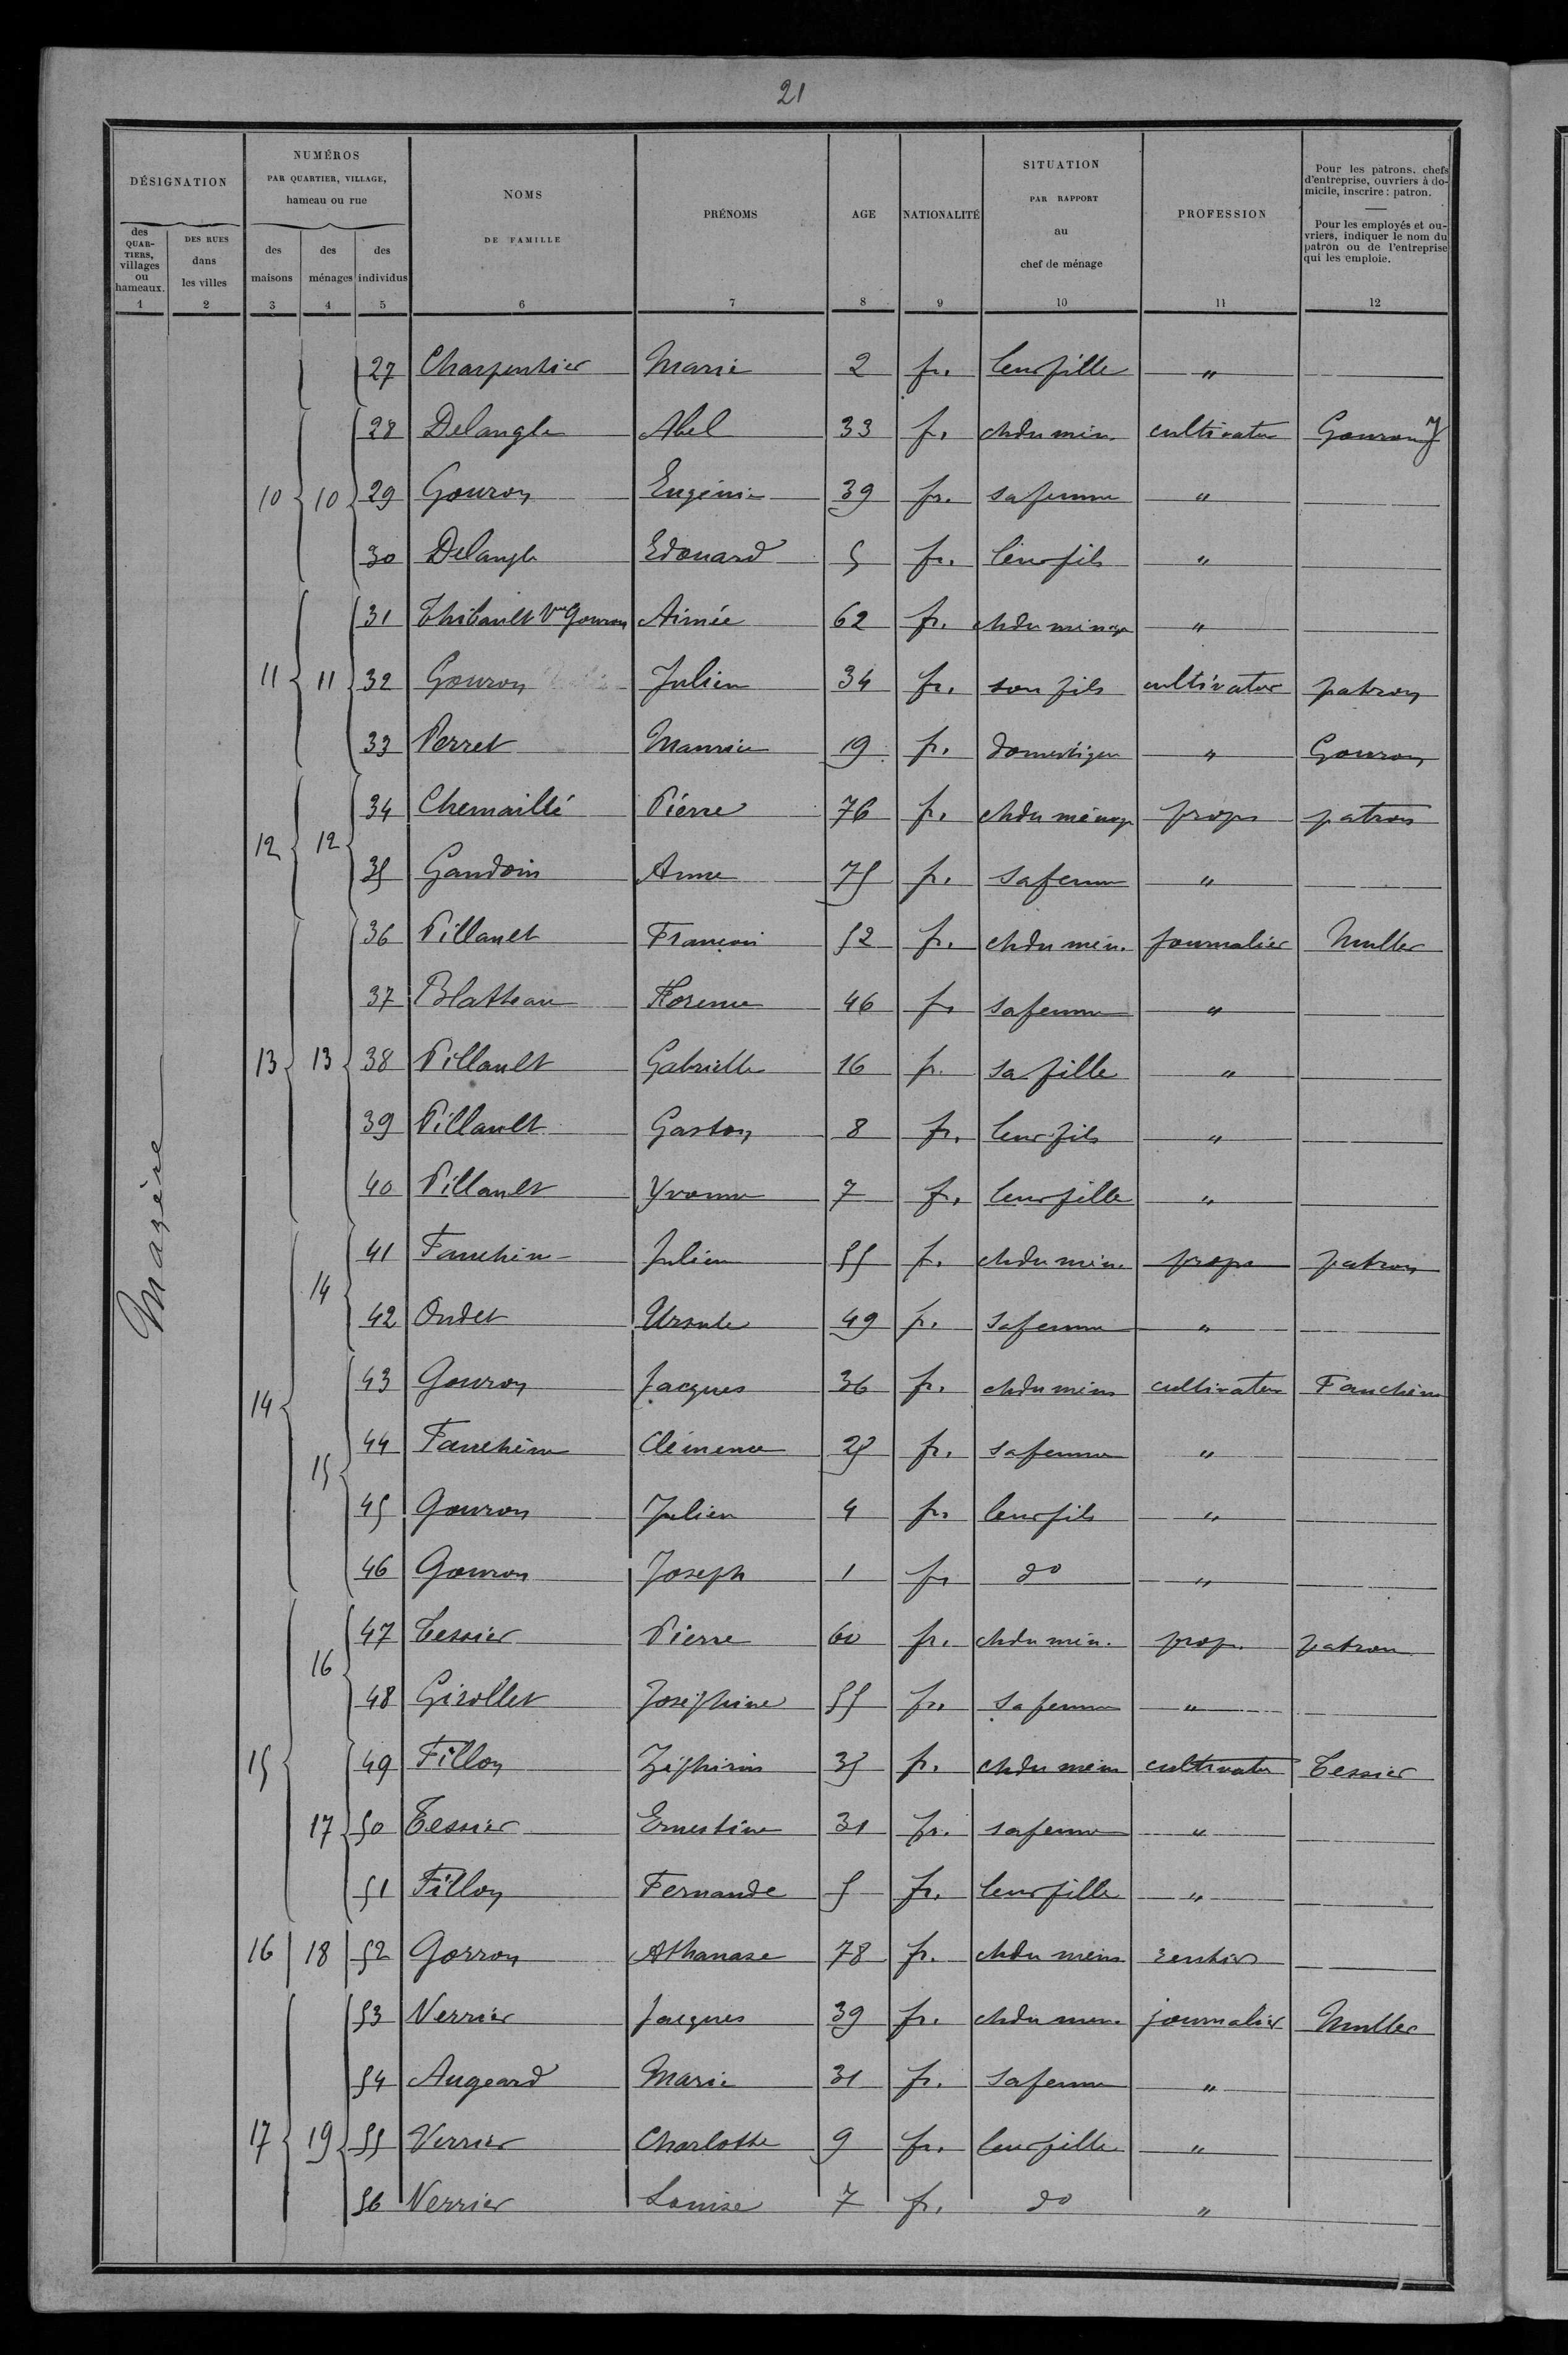 21
DÉSIGNATION
NUMÉROS
PAR QUARTIER, VILLAGE,
hameau ou rue
NOMS
DE FAMILLE
PRÉNOMS
AGE
NATIONALITÉ
SITUATION
PAR RAPPORT
au
chef de ménage
PROFESSION
Pour les patrons, chefs
d'entreprise, ouvriers à do-
micile, inscrire : patron.
Pour les employés et ou-
vriers, indiquer le nom du
patron ou de l'entreprise
qui les emploie.
des
QUAR-
TIERS,
villages
ou
hameaux.
DES RUES
dans
les villes
des
maisons
des
ménages
des
individus
1 2 3 4 5 6 7 8 9 10 11 12
Mazère
27 Charpentier Marie 2 fr. leur fille "
28 Delangle Abel 33 fr. ch du mén. cultivateur Gouron J
10 10 29 Gouron Eugénie 39 fr. sa femme "
30 Delangle Edouard 5 fr. leur fils "
31 Thibault Vve Gouron Aimée 62 fr. ch du ménage "
11 11 32 Gouron Julien 34 fr. son fils cultivateur patron
33 Perret Maurice 19 fr. domestique " Gouron
12 12 34 Chemaillé Pierre 76 fr. ch du ménage propr patron
35 Gandoin Anne 75 fr. sa femme "
36 Pillault François 52 fr. ch du mén. journalier Muller
37 Blatteau Florence 46 fr. sa femme "
13 13 38 Pillault Gabrielle 16 fr. sa fille "
39 Pillault Gaston 8 fr. leur fils "
40 Pillault Yvonne 7 fr. leur fille "
14 41 Fauchère Julien 55 fr. ch du mén. propr patron
42 Oudet Ursule 49 fr. sa femme "
14 43 Gouron Jacques 36 fr. ch du mén cultivateur Fauchère
15 44 Fauchère Clémence 25 fr. sa femme "
45 Gouron Julien 4 fr. leur fils "
46 Gouron Joseph 1 fr. do "
16 47 Tessier Pierre 60 fr. ch du mén. prop. patron
48 Girollet Joséphine 55 fr. sa femme "
15 49 Fillon Zéphirin 35 fr. ch du mén cultivateur Tessier
17 50 Tessier Ernestine 31 fr. sa femme "
51 Fillon Fernande 5 fr. leur fille "
16 18 52 Gorron Athanase 78 fr. ch du mén rentier
53 Verrier Jacques 39 fr. ch du mén. journalier Muller
54 Augeard Marie 31 fr. sa femme "
17 19 55 Verrier Charlotte 9 fr. leur fille "
56 Verrier Louise 7 fr. do "